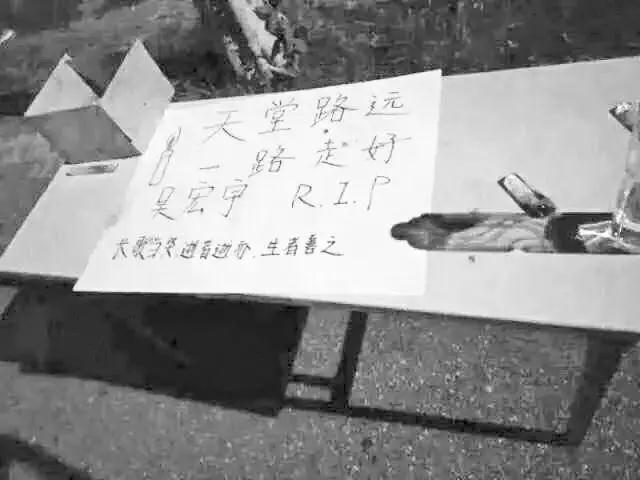 天堂路远
一路走好
吴宏宇 R.I.P
长歌当哭.逝者逝矣.生者善之